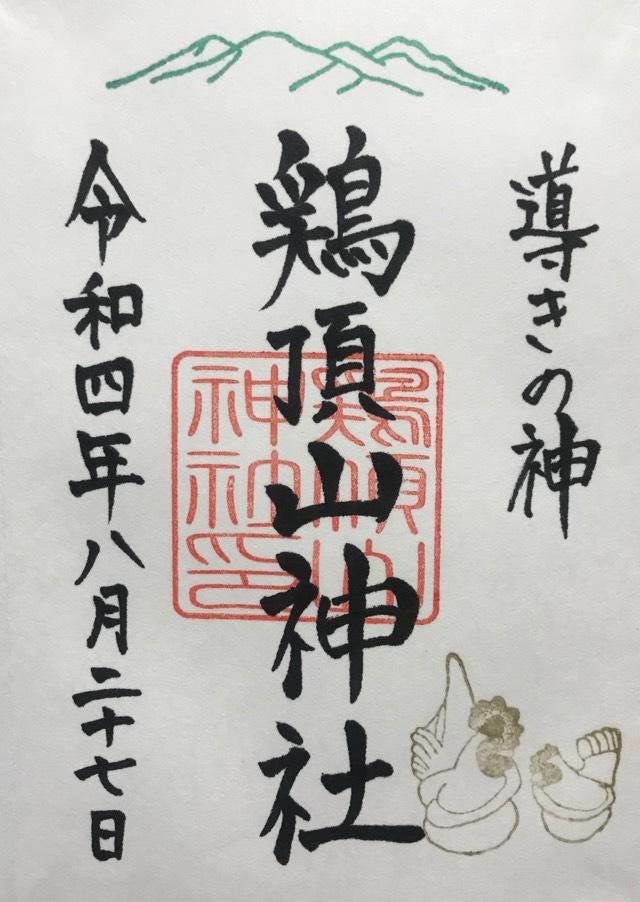 導きの神
鶏頂山神社
令和四年八月二十七日
鶏頂山
神社
神社印